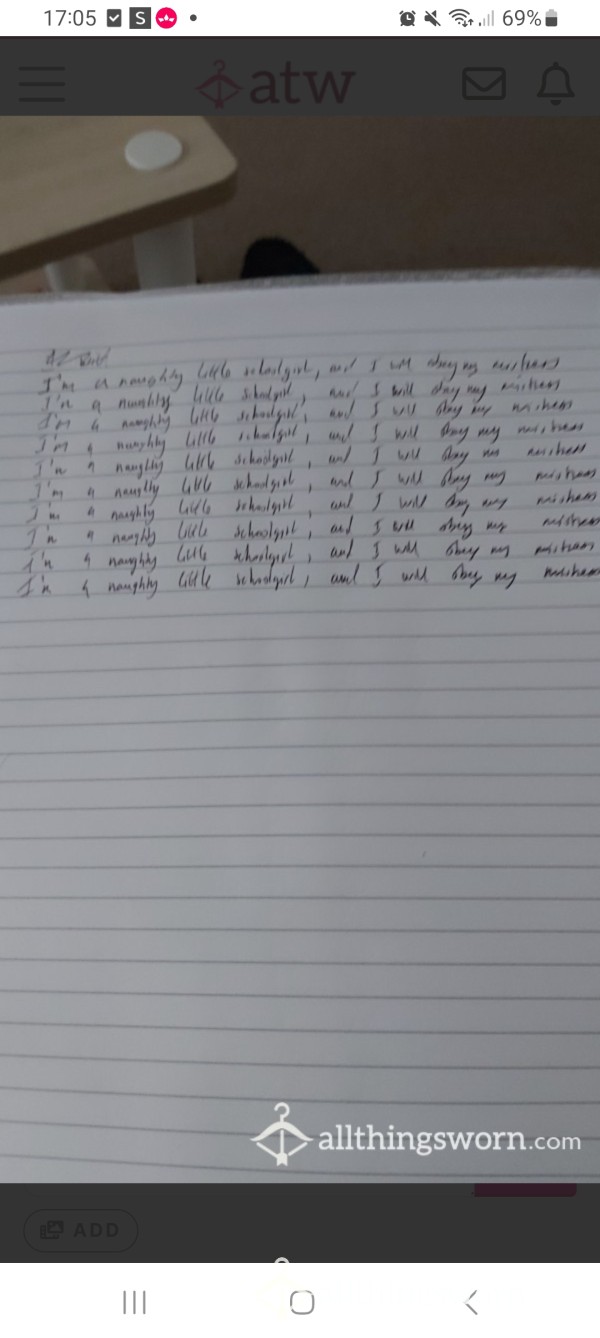 17:05
S
69%
atw
I'm a naughty little schoolgirl, and I will obey my mistress
I'm a naughty little schoolgirl, and I will obey my mistress
I'm a naughty little schoolgirl, and I will obey my mistress
I'm a naughty little schoolgirl, and I will obey my mistress
I'm a naughty little schoolgirl, and I will obey my mistress
I'm a naughty little schoolgirl, and I will obey my mistress
I'm a naughty little schoolgirl, and I will obey my mistress
I'm a naughty little schoolgirl, and I will obey my mistress
I'm a naughty little schoolgirl, and I will obey my mistress
I'm a naughty little schoolgirl, and I will obey my mistress
allthingsworn.com
ADD